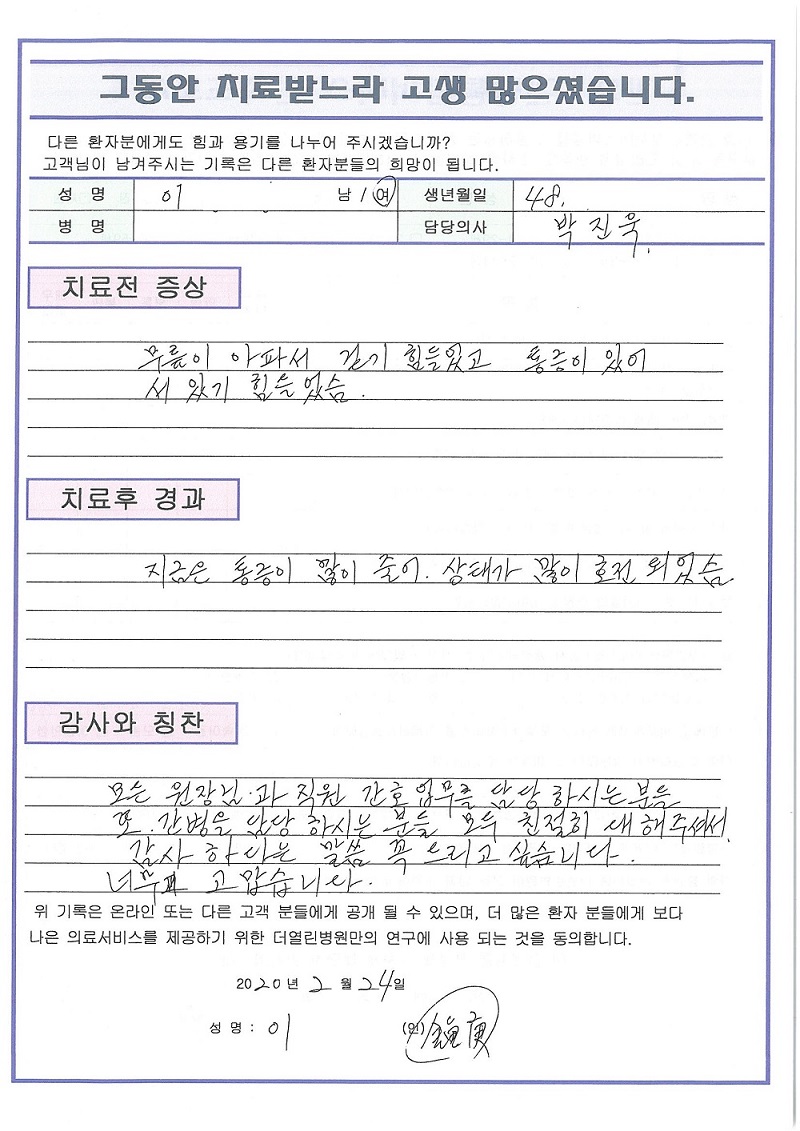 그동안 치료받느라 고생 많으셨습니다.
다른 환자분에게도 힘과 용기를 나누어 주시겠습니까?
고객님이 남겨주시는 기록은 다른 환자분들의 희망이 됩니다.
성 명 이 남 / 여 생년월일 48.
병 명 담당의사 박진욱.
치료전 증상
무릎이 아파서 걷기 힘들었고 통증이 있어
서 있기 힘들었슴.
치료후 경과
지금은 통증이 많이 줄어. 상태가 많이 호전 되었슴
감사와 칭찬
모든 원장님.과 직원 간호 업무를 담당 하시는 분들
또. 간병을 담당 하시는 분들 모두 친절히 대해주셔서.
감사 하다는 말씀 꼭 드리고 싶습니다.
너무 고맙습니다.
위 기록은 온라인 또는 다른 고객 분들에게 공개 될 수 있으며, 더 많은 환자 분들에게 보다
나은 의료서비스를 제공하기 위한 더열린병원만의 연구에 사용 되는 것을 동의합니다.
2020년 2 월 24일
성 명 : 이 (인)